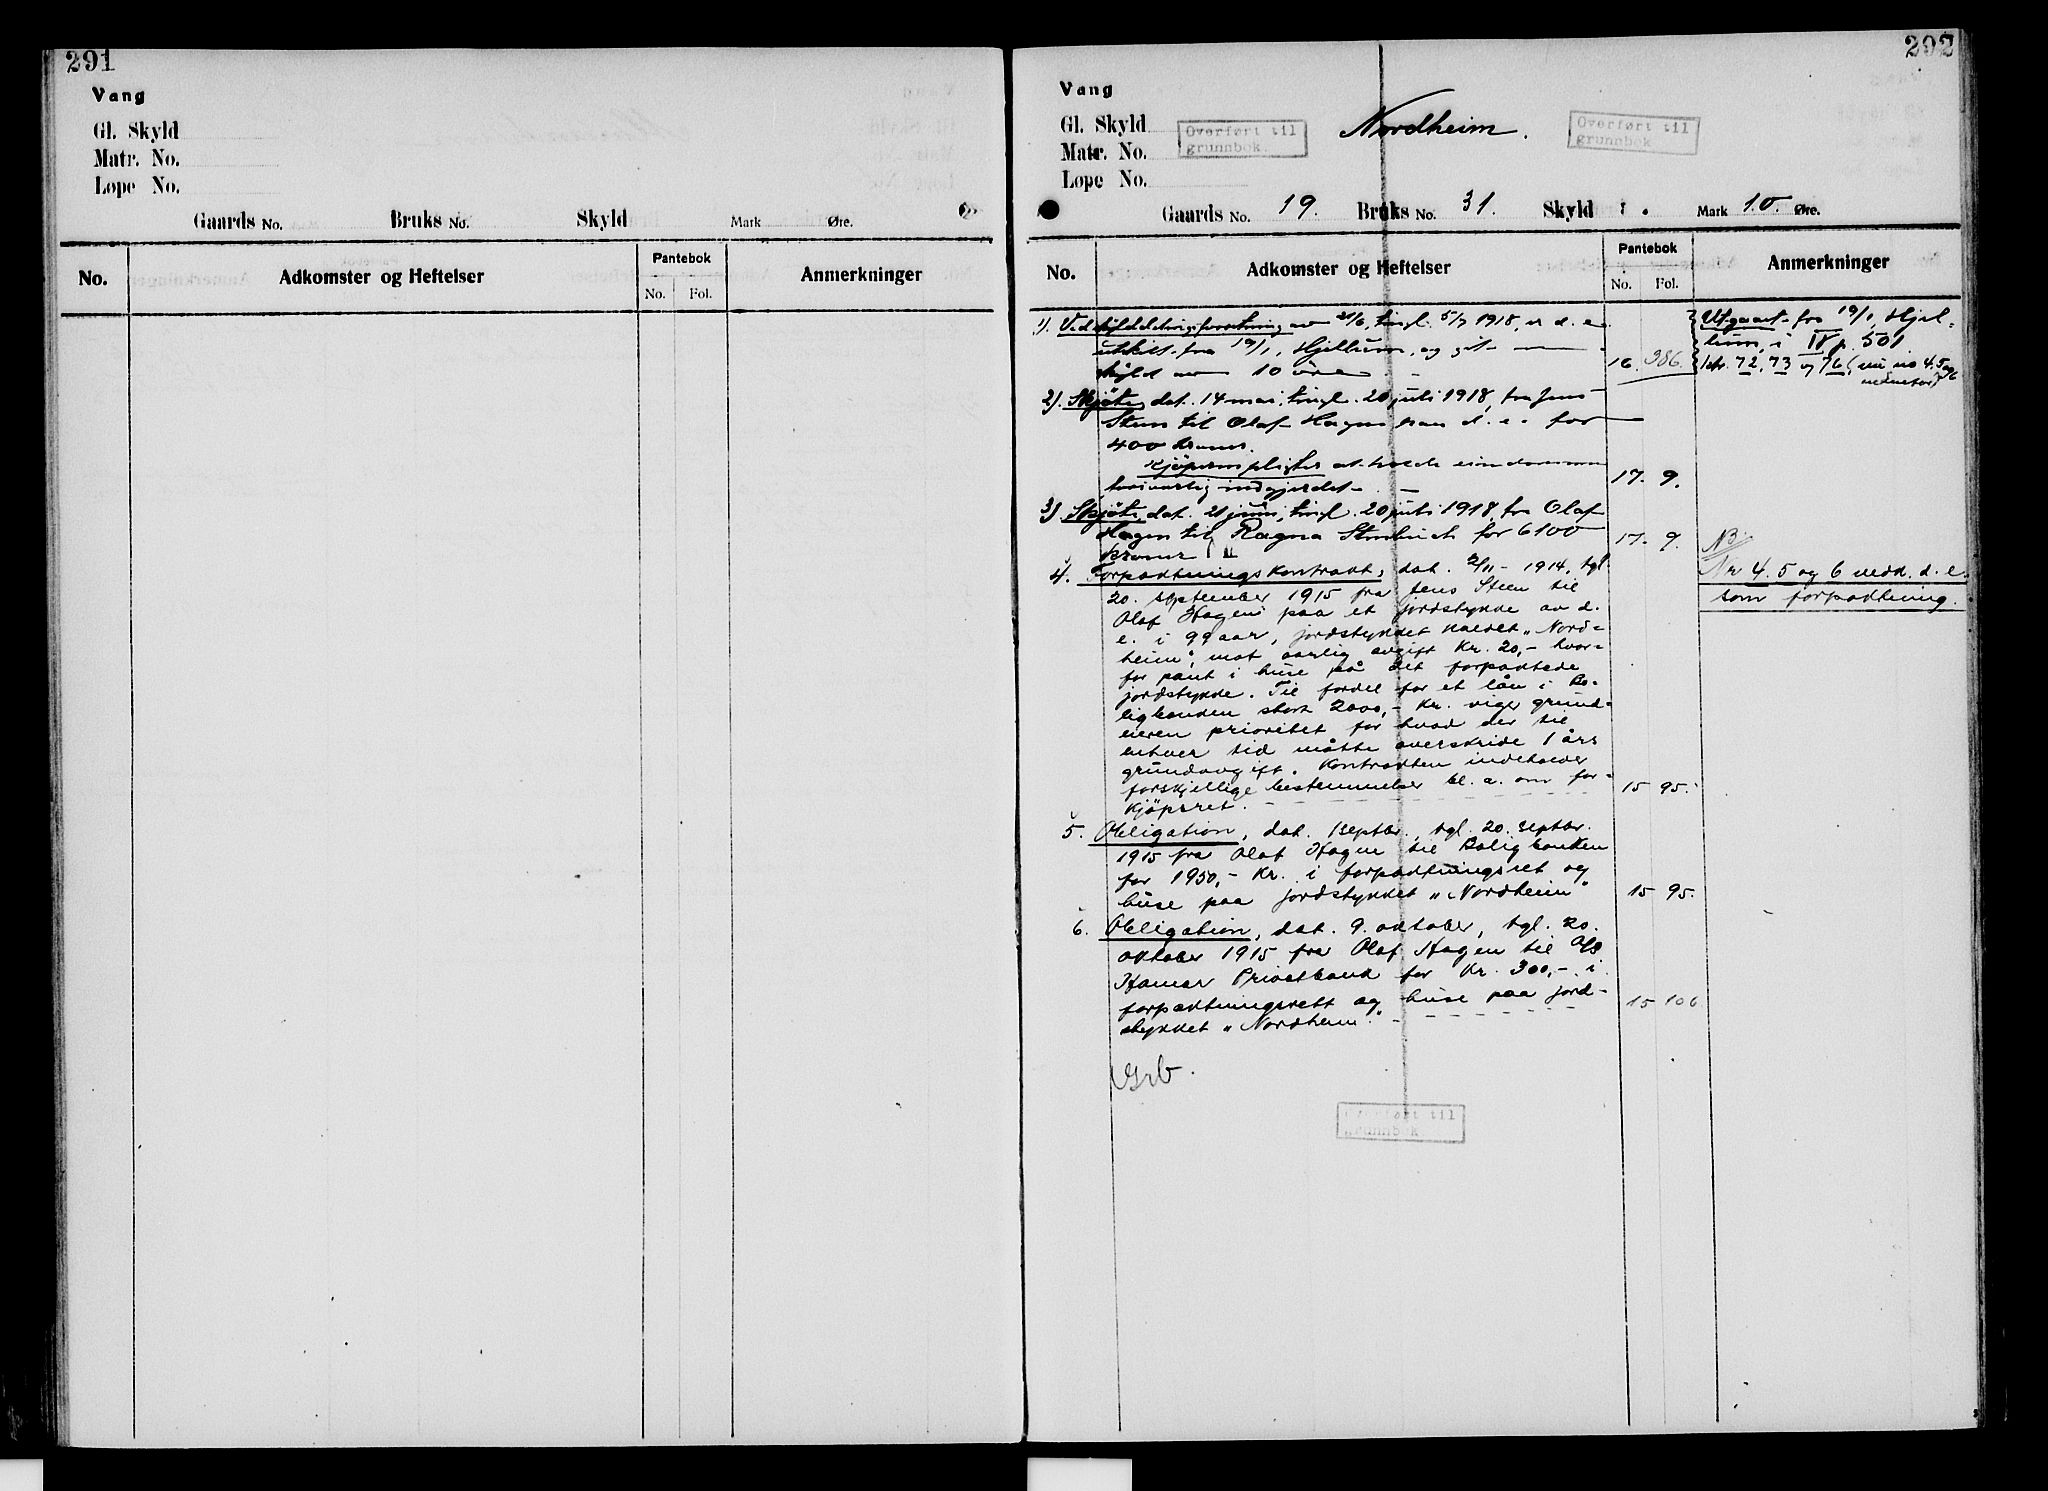 291
Vang
Gl. Skyld
Matr. No.
Løpe No.
Gaards No. Bruks No. Skyld Mark Øre.
No. Adkomster og Heftelser Pantebok Anmerkninger
No. Fol.
292
Vang
Gl. Skyld
Matr. No.
Løpe No.
Overført til
grunnbok.
Nordheim.
Overført til
grunnbok
Gaards No. 19. Bruks No. 31. Skyld Mark 10. Øre.
No. Adkomster og Heftelser Pantebok Anmerkninger
No. Fol.
1). Ved skylddelingsforretning av tingl. 5/7 1918, er d. e.
utskilt fra 19/1, Hjellum, og git
skyld av 10 øre 16. 386.
2). Skjøte, dat. 14 mai, tingl. 20 juli 1918, fra Jens
Steen til Olaf Hagen paa d. e. for
400 kroner.
Kjøperen pligter at holde eiendommen
forsvarlig indgjerdet 17. 9.
3) Skjøte, dat. 21 juni, tingl. 20 juli 1918 fra Olaf
Hagen til Ragna for 6100
kroner 17. 9.
4. Forpaktningskontrakt, dat. 2/11 - 1914, tgl.
20. september 1915 fra Jens Steen til
Olaf Hagen paa et jordstykke av d.
e. i 99 aar, jordstykket kaldet „Nord=
heim", mot aarlig avgift Kr. 20,- hvor=
for pant i huse på det forpaktede
jordstykke. Til fordel for et lån i Bo-
ligbanken stort 2000,- Kr. viger grund=
eieren prioritet for hvad der til
enhver tid måtte overskride 1 års
grundavgift. Kontrakten indeholder
forskjellige bestemmelser bl. a. om for-
kjøpsret. 15 95.
5. Obligation, dat. 1 septbr., tgl. 20. septbr.
1915 fra Olaf Hagen til Boligbanken
for 1950,- Kr. i forpaktningsret og
huse paa jordstykket „Nordheim" 15 95.
6. Obligation, dat. 9. oktober, tgl. 20.
oktober 1915 fra Olaf Hagen til A/S
Hamar Privatbank for Kr. 300,- i
forpaktningsrett og huse paa jord-
stykket „Nordheim". 15 106
Grb.
Overført til
grunnbok
Utgaaet fra 19/1, Hjel=
lum, i IV p. 501
nr. 72, 73 og 76 (nu no 4.5 og 6
nedenfor)
NB.
Nr 4. 5 og 6 vedk. d. e.
som forpaktning.